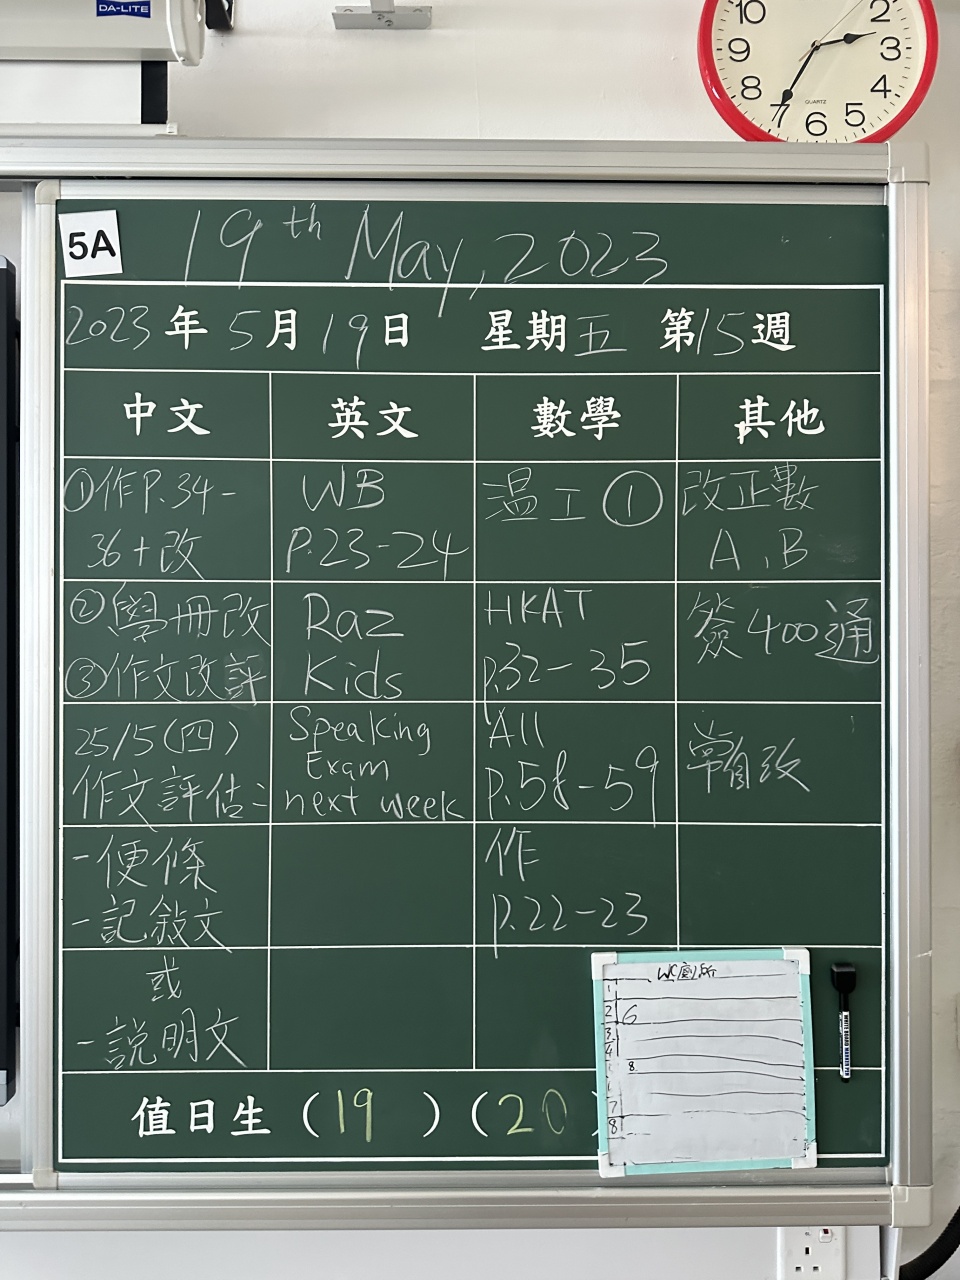 DA-LITE
10
2
9
3
8
4
7
5
6
QUARTZ
5A
19th May, 2023
2023年5月19日 星期五 第15週
中文 英文 數學 其他
①作P.34-
36+改
WB
P.23-24
温工①
改正數
A、B
②學冊改
③作文改評
Raz
Kids
HKAT
p.32-35
簽400通
25/5(四)
作文評估：
Speaking
Exam
next week
All
p.58-59
-便條
-記敍文
作
p.22-23
或
-說明文
值日生（19）（20
WC廁所
1
2
6
3
4
8.
7
8